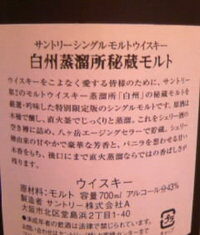 サントリーシングルモルトウイスキー
白州蒸溜所秘蔵モルト
ウイスキーをこよなく愛する皆様のために、サントリー
第2のモルトウイスキー蒸溜所「白州」の秘蔵モルトを
厳選・吟味した特別限定版のシングルモルトです。原酒は
木桶で醸し、直火釜でじっくりと蒸溜。これをシェリー酒の
空き樽に詰め、八ヶ岳エイジングセラーで貯蔵。シェリー
樽由来の甘やかで豪華な芳香と、バニラを想わせる甘い
木香をもち、後口にまで直火蒸溜ならではの香ばしさが
残ります。
ウイスキー
原材料：モルト 容量700ml アルコール分43%
製造者 サントリー株式会社A
大阪市北区堂島浜2丁目1-40